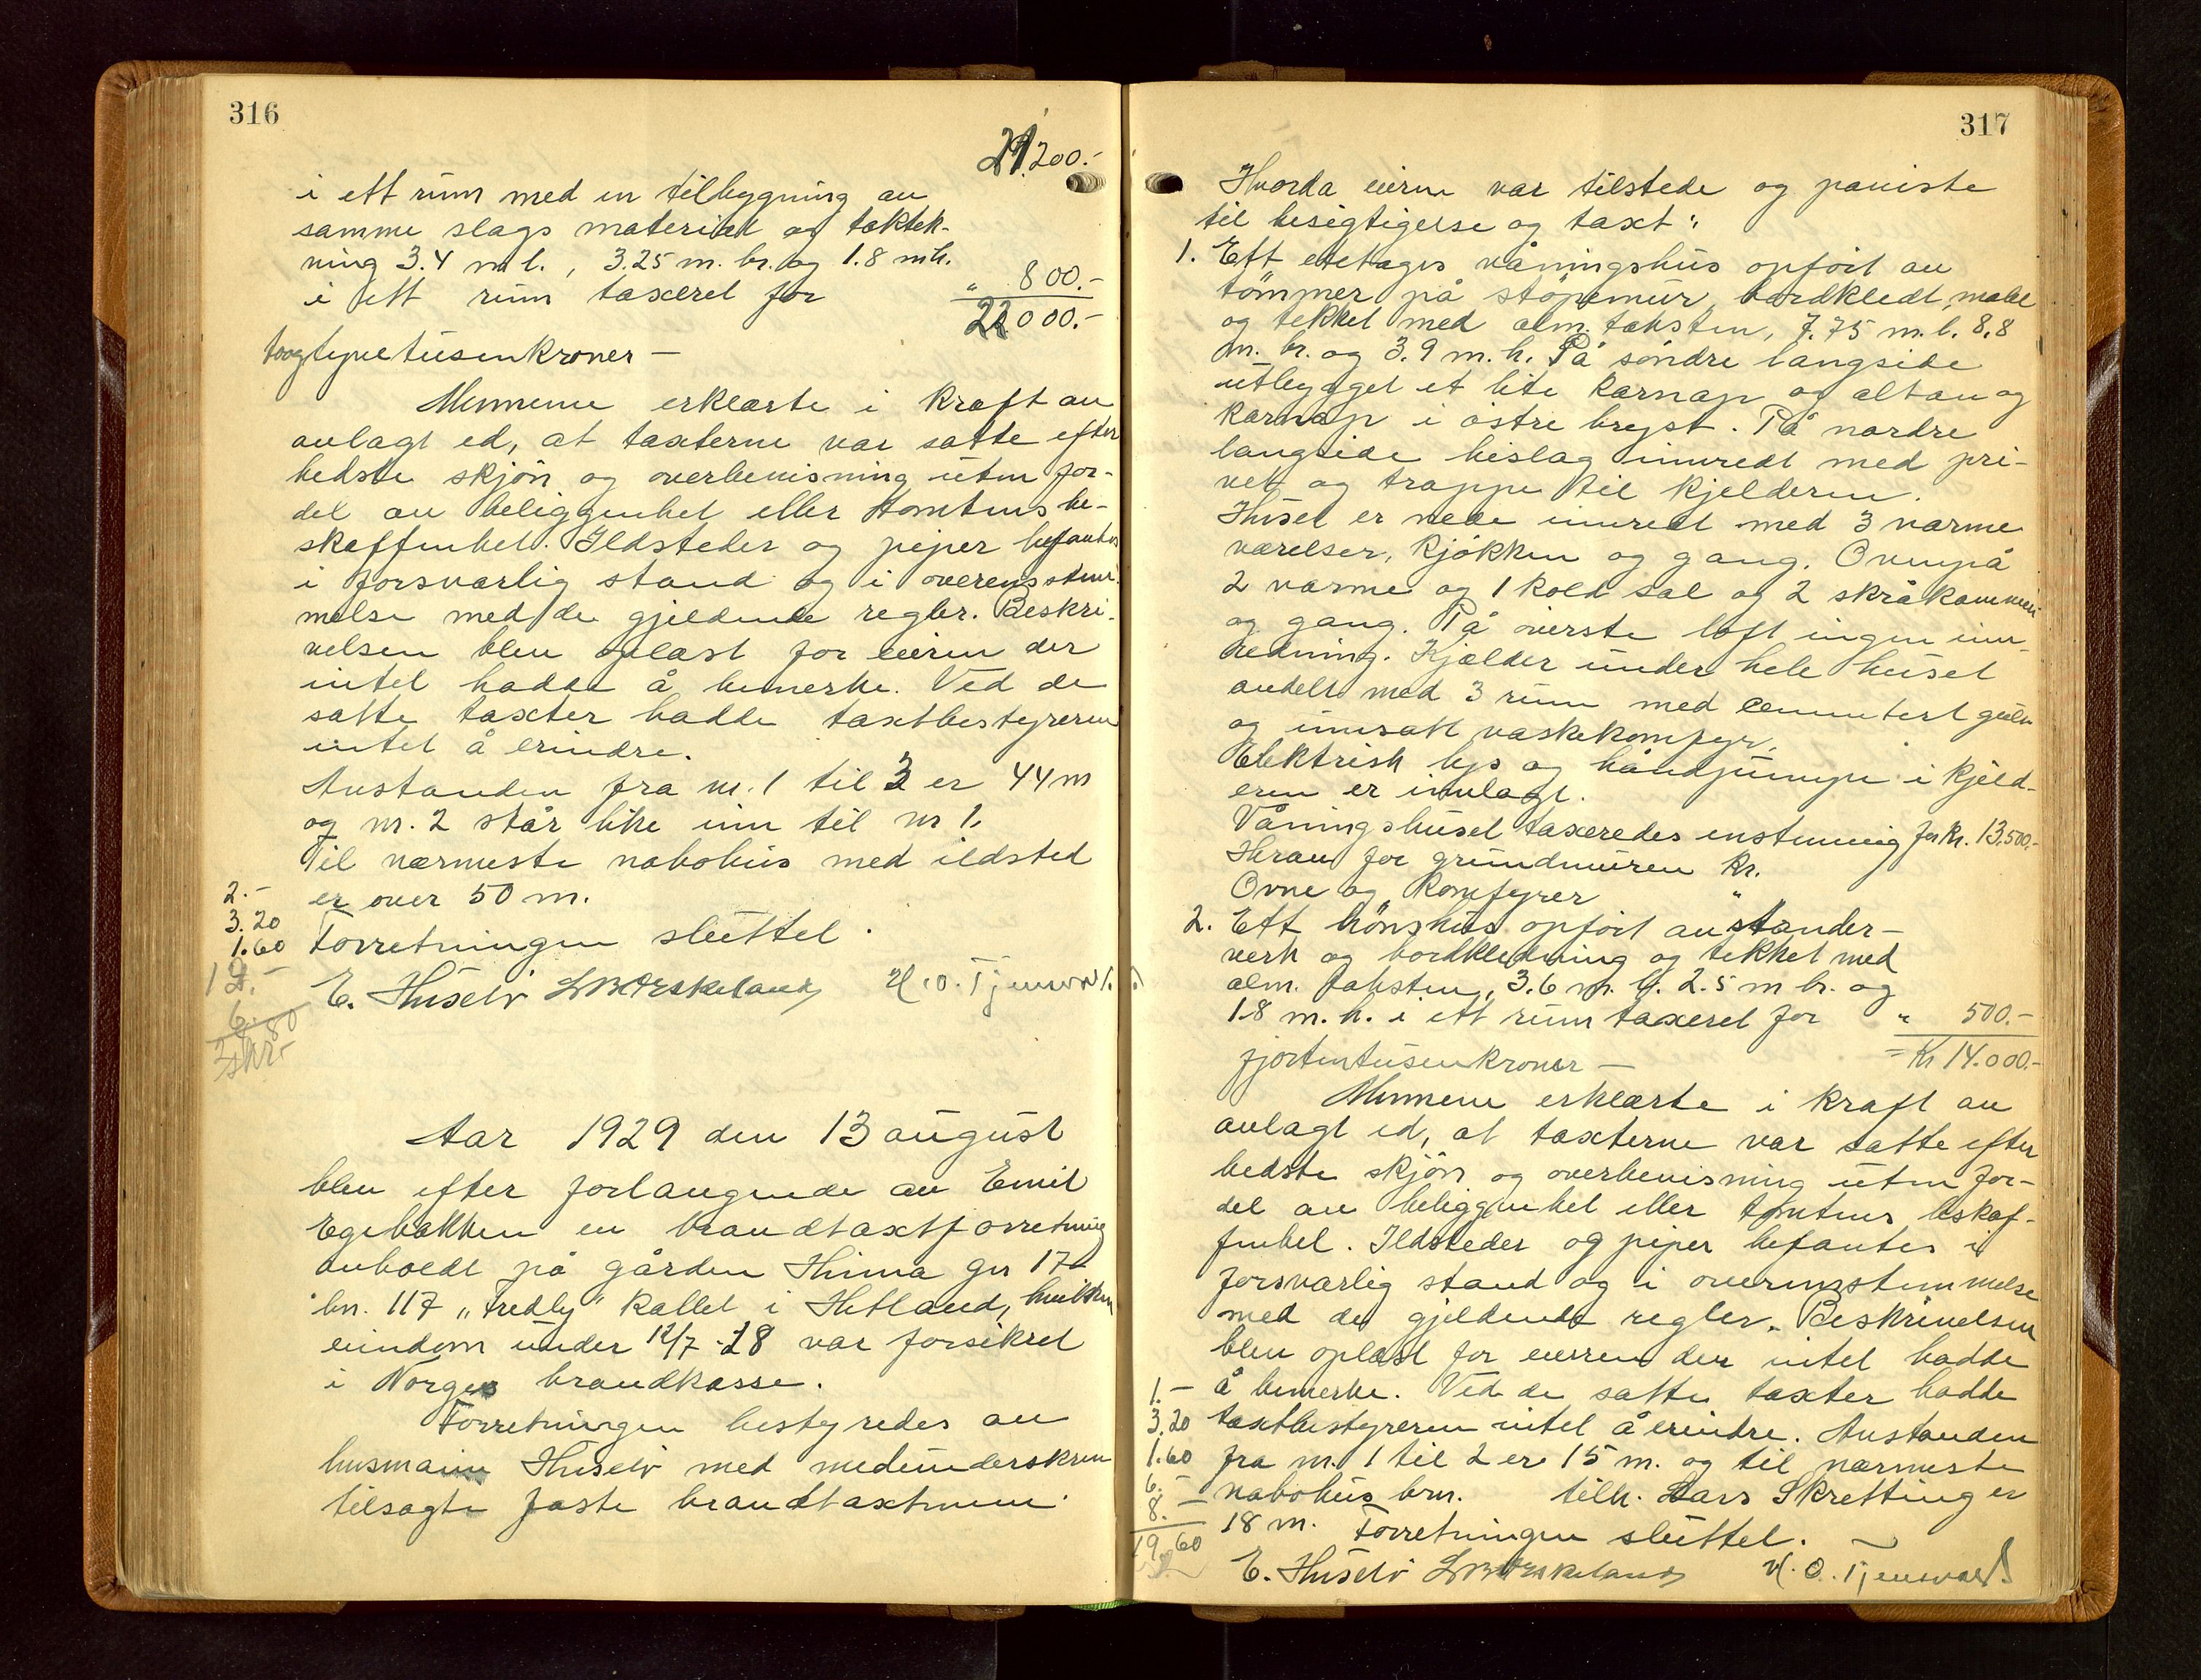 316
21.200.-
i ett rum med en tilbygning av
samme slags material og taktek-
ning 3.4 m l., 3.25 m. br. og 1.8 m h.
i ett rum taxeret for " 800.-
22000.-
toogtyvetusenkroner -
Mennene erklærte i kraft av
avlagt ed, at taxterne var satte efter
bedste skjön og overbevisning uten for-
del av beliggenhet eller tomtens be-
skaffenhet. Ildsteder og piper befantes
i forsvarlig stand og i overensstem-
melse med de gjeldende regler. Beskri-
velsen blev oplæst for eieren der
intet hadde å bemerke. Ved de
satte taxter hadde taxtbestyreren
intet å erindre.
Avstanden fra nr. 1 til 3 er 44 m
og nr. 2 står like inn til nr 1.
Til nærmeste nabohus med ildsted
2.- er over 50 m.
3.20
1.60 Forretningen sluttet.
E. Husebö
Aar 1929 den 13 august
blev efter forlangende av Emil
Egebakken en brandtaxtforretning
avholdt på gården Hinna gn 17
bn. 117 "Fredly" kallet i Hetland, hvilken
eiendom under 12/7-28 var forsikret
i Norges brandkasse.
Forretningen bestyredes av
husmann Husebö med medunderskrevn
tilsagte faste brandtaxtmenn.
317
Hvorda eieren var tilstede og paaviste
til besigtigelse og taxt:
1. Ett etetages våningshus opfört av
tömmer på stöpemur, bordkledt, malt
og tekket med alm. taksten, 7.75 m. l. 8.8
m. br. og 3.9 m. h. På söndre langside
utbygget et lite karnap og altan og
karnap i östre bryst. På nordre
langside bislag innredt med pri-
vet og trappe til kjelderen.
Huset er nede innredt med 3 varme
værelser, kjökken og gang. Ovenpå
2 varme og 1 kold sal og 2 skråkammer
og gang. På överste loft ingen inn-
redning. Kjælder under hele huset
avdelt med 3 rum med cementert gulv
og innsatt vaskekomfyr.
Elektrisk lys og håndpumpe i kjeld-
eren er innlagt.
Våningshuset taxeredes enstemmig for kr. 13.500.-
Herav for grundmuren kr.
Ovne og komfyrer "
2. Ett hönshus opfört av stander-
verk og bordkledning og tekket med
alm. taksten, 3.6 m. l. 2.5 m br. og
1.8 m. h. i ett rum taxeret for " 500.-
fjortentusenkroner - = Kr 14.000.-
Mennene erklærte i kraft av
avlagt ed, at taxterne var satte efter
bedste skjön og overbevisning uten for-
del av beliggenhet eller tomtens beskaf-
fenhet. Ildsteder og piper befantes i
forsvarlig stand og i overensstemmelse
med de gjeldende regler. Beskrivelsen
blev oplæst for eieren der intet hadde
1.- å bemerke. Ved de satte taxter hadde
3.20 taxtbestyreren intet å erindre. Avstanden
1.60 fra nr. 1 til 2 er 15 m. og til nærmeste
6.- nabohus brn. tilh. Lars Skretting er
8.- 18 m. Forretningen sluttet.
19.60
E. Husebö